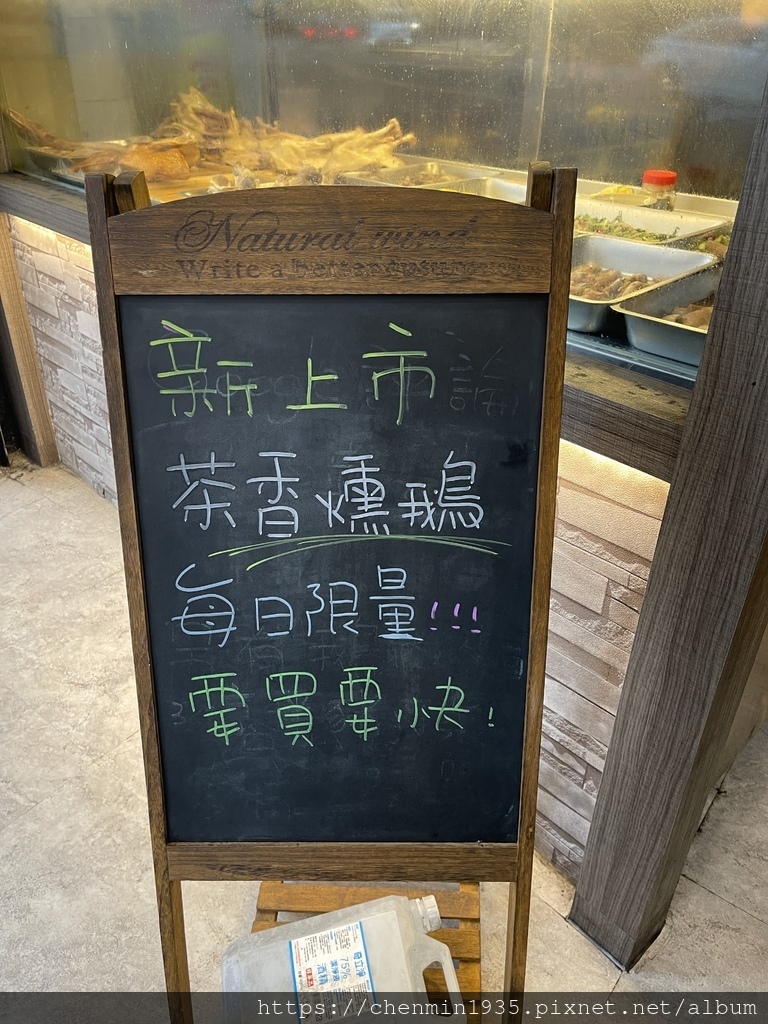 Natural wind
Write a better
新上市
茶香燻鵝
每日限量!!!
要買要快!
75%
酒精
https://chenmin1935.pixnet.net/album